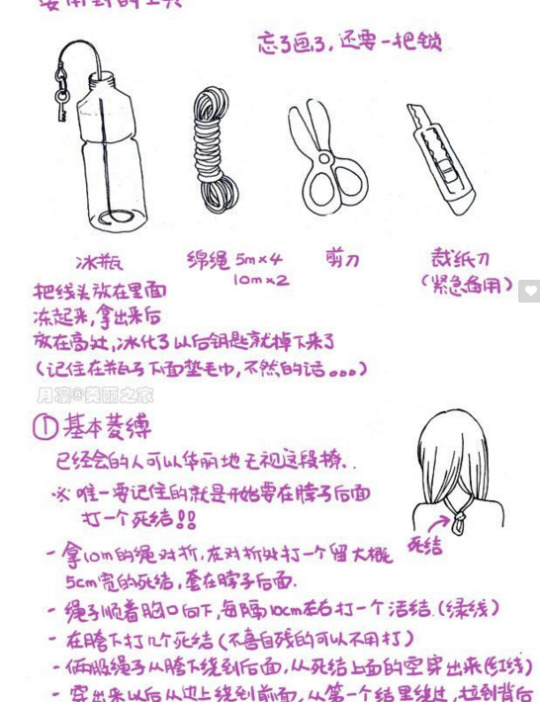 要用到的工具
忘了画了,还要一把锁
冰瓶
绵绳 5m×4
10m×2
剪刀
裁纸刀
(紧急备用)
把线头放在里面
冻起来,拿出来后
放在高处,冰化了以后钥匙就掉下来了
(记住在瓶子下面垫毛巾,不然的话。。。)
月 @美丽之家
① 基本菱缚
已经会的人可以华丽地无视这段撩..
※ 唯一要记住的就是开始要在脖子后面
打一个死结!!
死结
- 拿10m的绳对折,在对折处打一个留大概
5cm宽的死结,套在脖子后面.
- 绳子顺着胸口向下,每隔10cm左右打一个活结.(绿线)
- 在胯下打几个死结(不喜自残的可以不用打)
- 俩股绳子从胯下绕到后面,从死结上面的空穿出来(红线)
- 穿出来以后从边上绕到前面,从第一个结里绕过,拉到背后